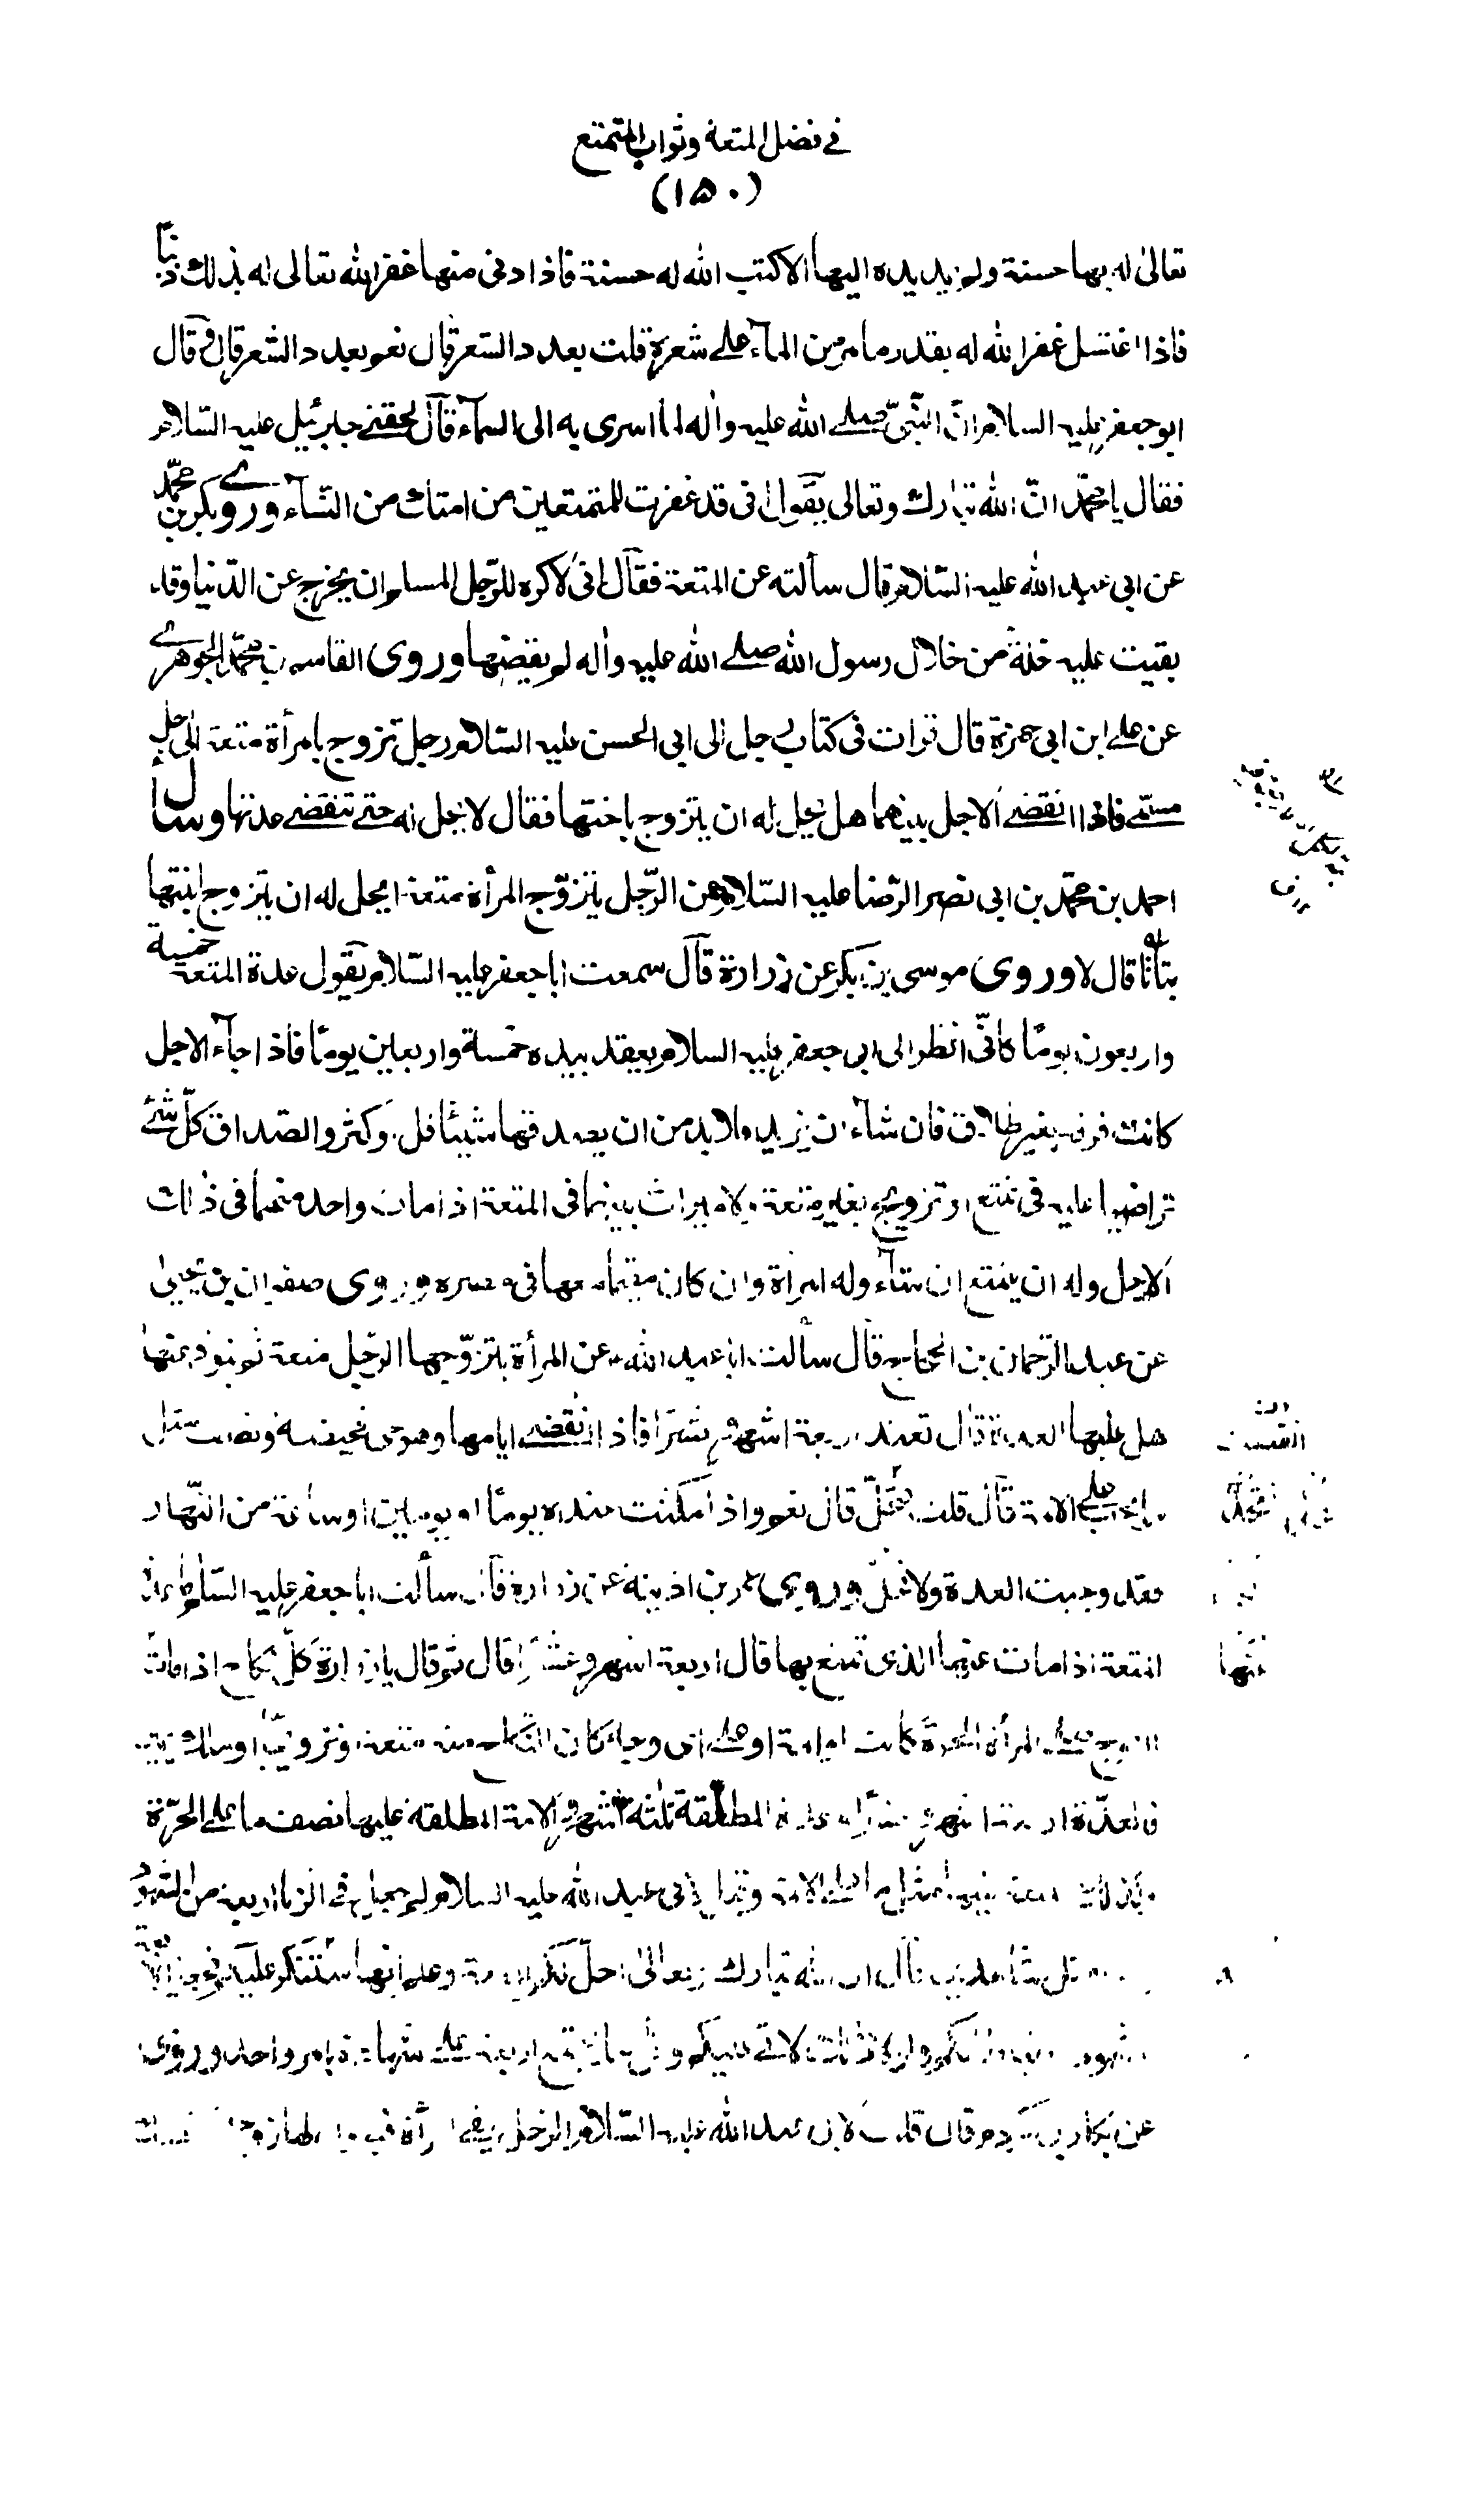 في فضل المتعة وثواب المتمتع
(١۵٠)
تعالى له بها حسنة ولم يمد يده اليها الا كتب الله له حسنة فاذا دنى منها غفر الله تعالى له بذلك ذنبا
فاذا اغتسل غفر الله له بقدر ما مر من المآء على شعره قلت بعدد الشعر قال نعم بعدد الشعر قال وقال
ابو جعفر عليه السلام انّ النّبىّ صلى الله عليه واله لما اسرى به الى السمآء قال لحقنى جبرئيل عليه السّلام
فقال يا محمّد انّ الله تبارك وتعالى يقول انى قد غفرت للمتمتعين من امتك من النّسآء وروى بكر بن محمّد
عن ابى عبد الله عليه السّلام قال سألته عن المتعة فقال انى لاكره للرّجل المسلم ان يخرج عن الدّنيا وقد
بقيت عليه خلة من خلال رسول الله صلى الله عليه واله لم يقضها وروى القاسم بن محمّد الجوهرى
عن على ابن ابى حمزة قال قرات فى كتاب رجل الى ابى الحسن عليه السّلام رجل تزوج بامرأة متعة الى اجل
مسمّى فاذا انقضى الاجل بينهما هل يحل له ان يتزوج باختها فقال لا يحل له حتى تنقضى عدتها وسأل
احمد بن محمّد بن ابى نصر الرّضا عليه السّلام عن الرّجل يتزوّج المرأة متعة ايحل له ان يتزوج ابنتها
بتاتا قال لا وروى موسى بن بكر عن زرارة قال سمعت ابا جعفر عليه السّلام يقول عدة المتعة خمسة
واربعون يومًا كانّى انظر الى ابى جعفر عليه السلام يعقد بيده خمسة واربعين يومًا فاذا جآء الاجل
كانت فرقة بغير طلاق فان شآء ان يزيد فلا بد من ان يصدقها شيئا قل او كثر والصداق كلّ شئ
تراضيا عليه فى تمتع او تزويج بغير متعة ولا ميراث بينهما فى المتعة اذا مات واحد منهما فى ذلك
الاجل وله ان يتمتع ان شآء وله امرأة وان كان مقيما معها فى مصره وروى صفوان بن يحيى
عن عبد الرّحمان بن الحجاج قال سألت ابا عبد الله عن المرأة يتزوّجها الرّجل متعة ثم يتوفى عنها
هل عليها العدة قال تعتد اربعة اشهر وعشرًا فاذا انقضى ايامها وهو حى فحيضة ونصف مثل
ما يجب على الامة قال قلت فتحدّ قال نعم واذا مكثت عنده يومًا او يومين او ساعة من النّهار
فقد وجبت العدة ولا تحدّ وروى عمر بن اذينة عن زرارة قال سألت ابا جعفر عليه السّلام ما عدة
المتعة اذا مات عنها الذى تمتع بها قال اربعة اشهر وعشرًا قال ثم قال يا زرارة كلّ نكاح اذا مات
الزوج فعلى المرأة حرّة كانت او امة او على اى وجه كان النّكاح منه متعة او تزويجًا او ملك يمين
فالعدّة اربعة اشهر وعشرًا وعدة المطلقة ثلثة اشهر والامة المطلقة عليها نصف ما على الحرّة
وكذلك المتعة عليها مثل ما على الامة وقيل لابى عبد الله عليه السلام لم جعل فى الزنا اربعة من الشهود
قال ان الله تبارك وتعالى احلّ لكم المتعة وعلم انها ستنكر عليكم فجعل الاربعة
الشهود
عن بكار بن كردم قال قلت لابى عبد الله عليه السّلام الرّجل يلقى المرأة فيقول لها زوجينى نفسك